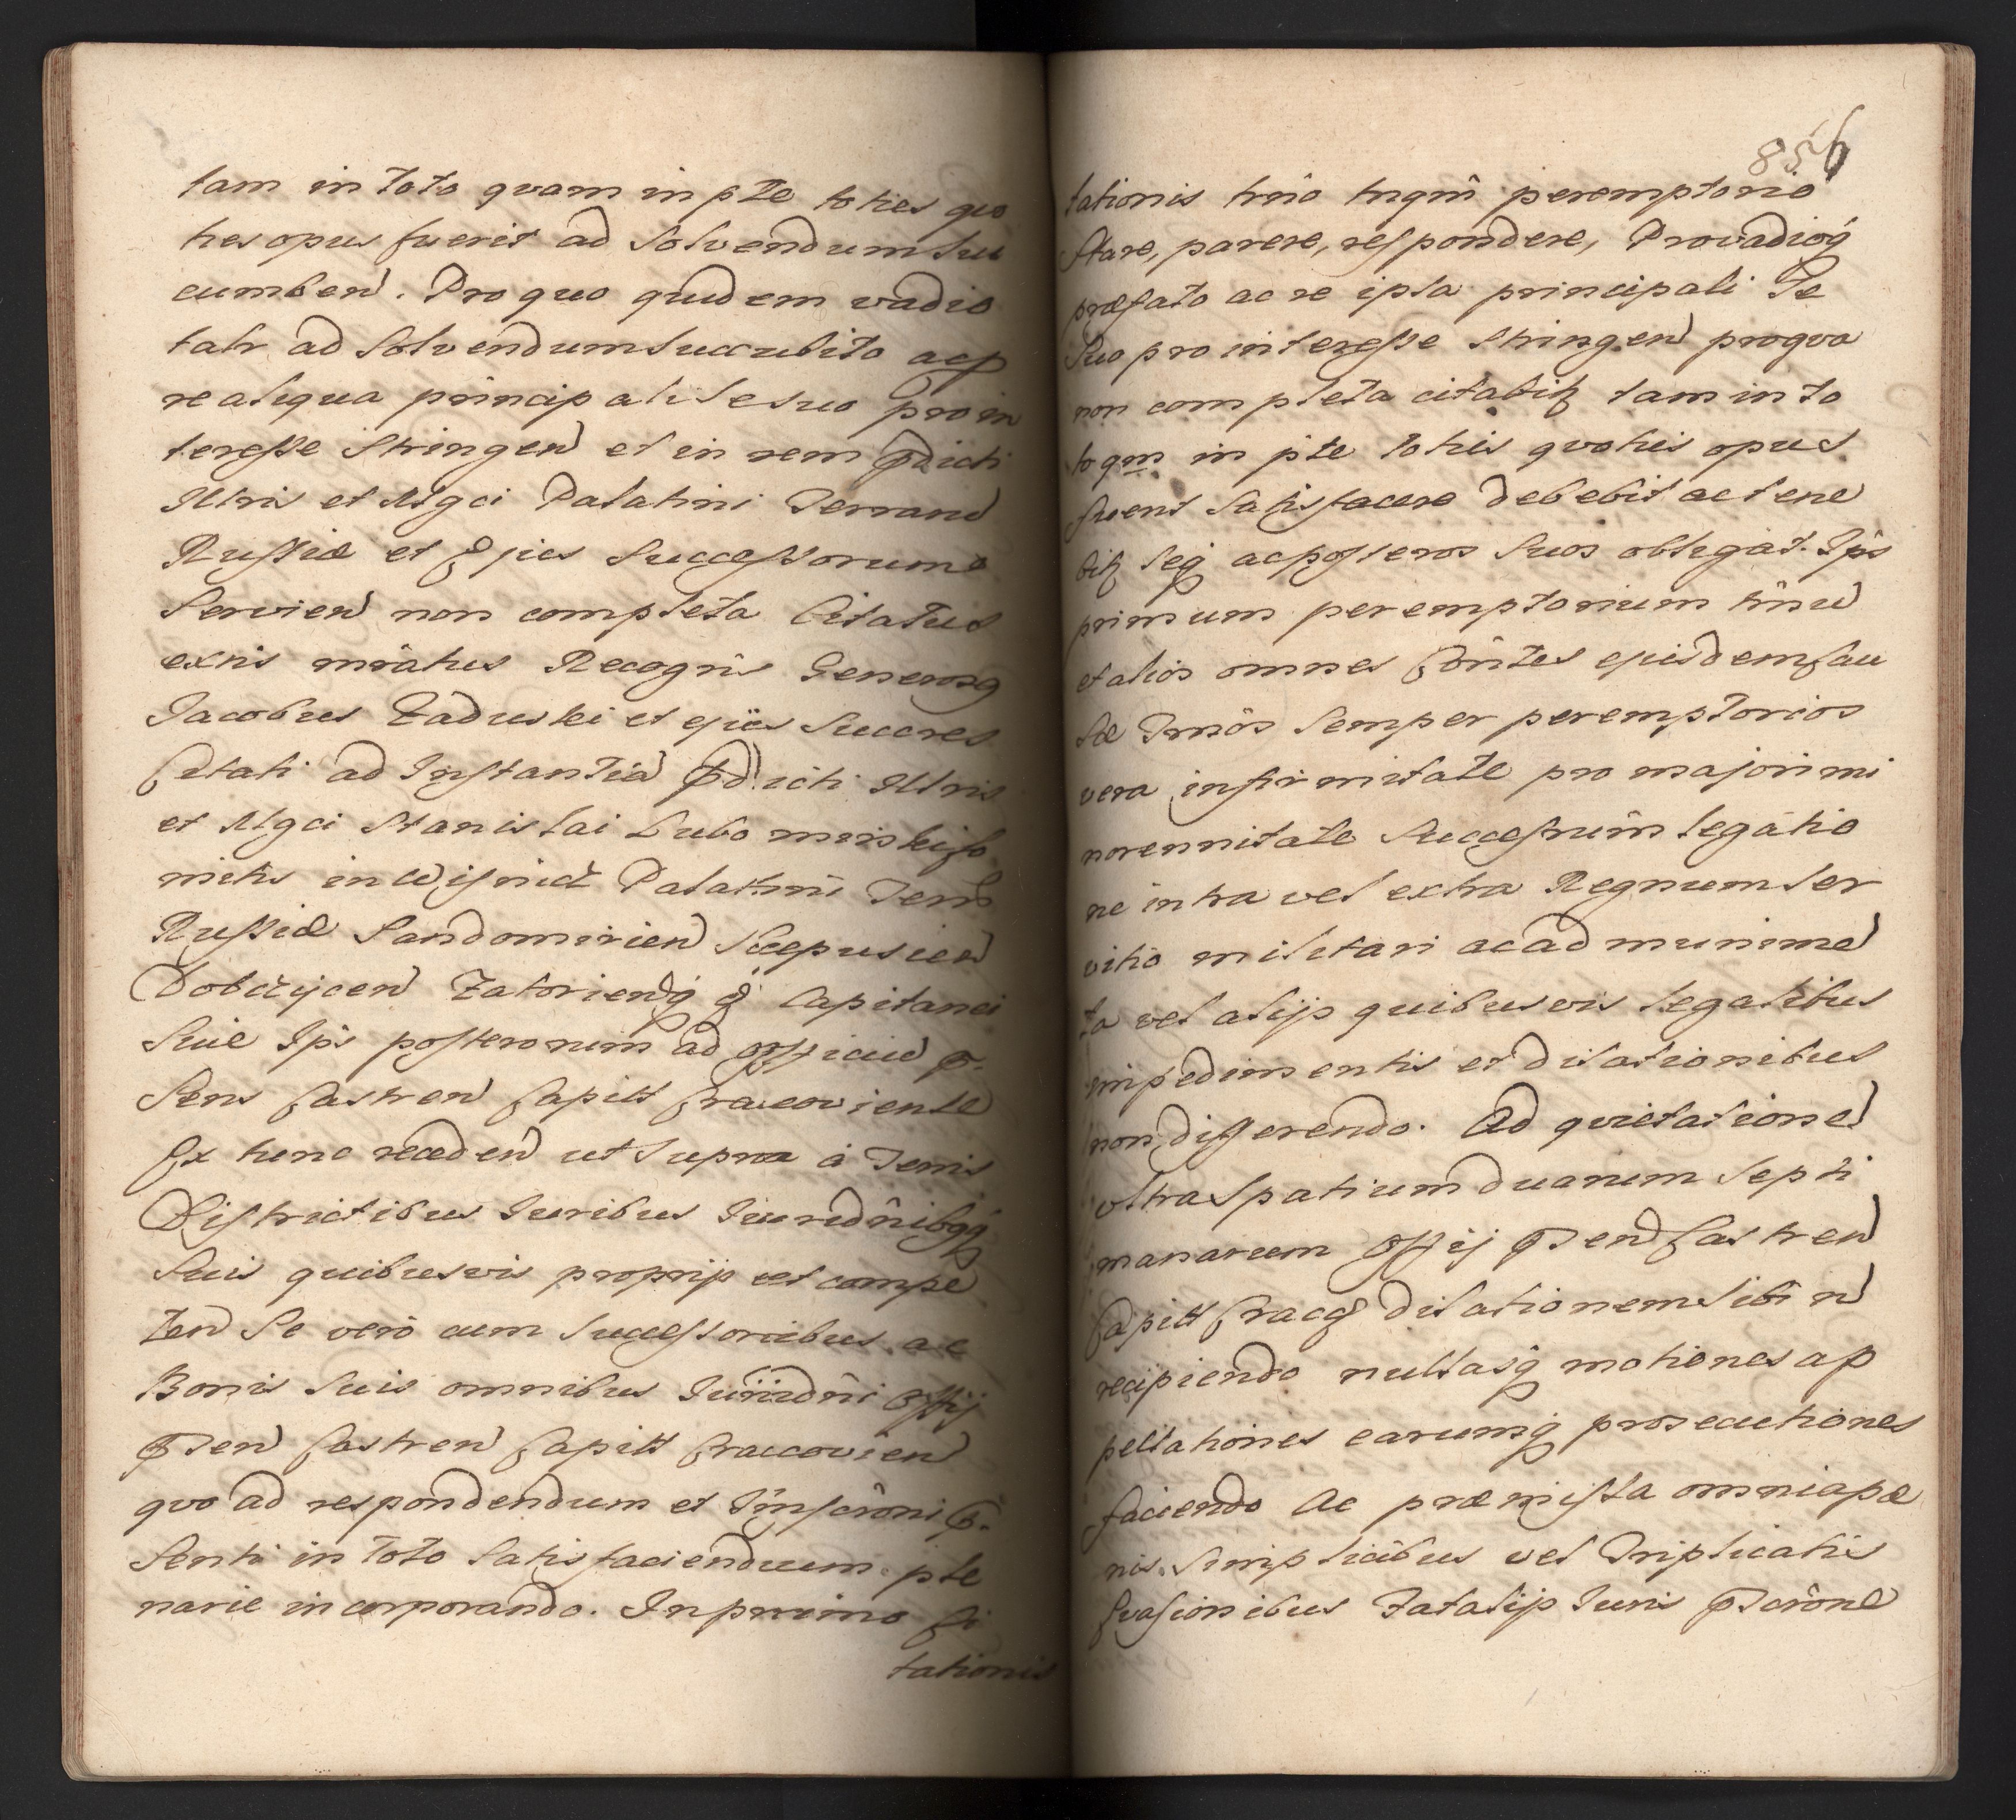 tam in toto quam in pte toties quo
ties opus fuerit ad solvendum suc
cumben. Pro quo quidem vadio
talr ad solvendum succubito acp
re aliqua principali se suo pro in
teresse stringen et in rem pdicti
Illris et Mgci Palatini Terraru
Russiæ et ejus successorum
servien non completa Citatus
exnis mratus Recogns Generosq
Jacobus Zaduski et ejus succes
Citati ad Instantia pdicti Illris
et Mgci Stanislai Lubomirski Co
mitis in Wisnicz Palatini Terrs
Russiæ Sandomirien Scepusien
Dobczycen Zatorienq q Capitanei
sui Ips posterorum ad Officiu p
sens Castren Capitt Cracoviense
Ex tunc receden ut supra à Terris
Districtibus Juribus Jurisdnibqq
suis quibusvis proprijs et compe
ten se vero cum successoribus ac
Bonis suis omnibus Jurisdni Offij
psen Castren Capitt Craccovien
quo ad respondendum et Inscroni p
senti in toto satisfaciendum ple
narie incorporando. In primo Ci
tationis
856
tationis trno tnqm peremptorio
stare, parere, respondere, Pro vadioq
præfato ac re ipsa principali se
suo pro interesse stringen pro qua
non completa citabitq tam in to
to qm in pte toties quoties opus
fuerit satisfacere debebit ac tene
bitq seq ac posteros suos obligat. Ips
primum peremptorium trnu
et alios omnes Cōntes ejusdem cau
sæ Trnos semper peremptorios
vera infirmitate pro majori mi
norennitate successrum legatio
ne intra vel extra Regnum ser
vitio militari ac ad munime
ta vel alijs quibusvis legalibus
impedimentis et dilationibus
non differendo. Ad quietatione
ultra spatium duarum septi
manarum Offij psen Castren
Capitt Cracq dilationem sibi n
recipiendo nullasq motiones ap
pellationes earumq prosecutiones
faciendo Ac præmissa omnia pæ
nis simplicibus vel Triplicatis
Evasionibus Fatalijs Juris pscrone